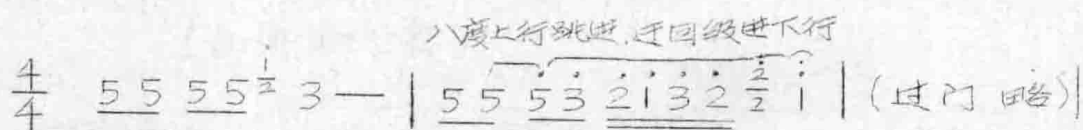 八度上行跳进.迂回级进下行
4/4 5 5 5 5 i/2 3 — | 5 5 5̇ 3̇ 2̇ 1̇ 3̇ 2̇ 2̇/2 1̇ | (过门 略) |